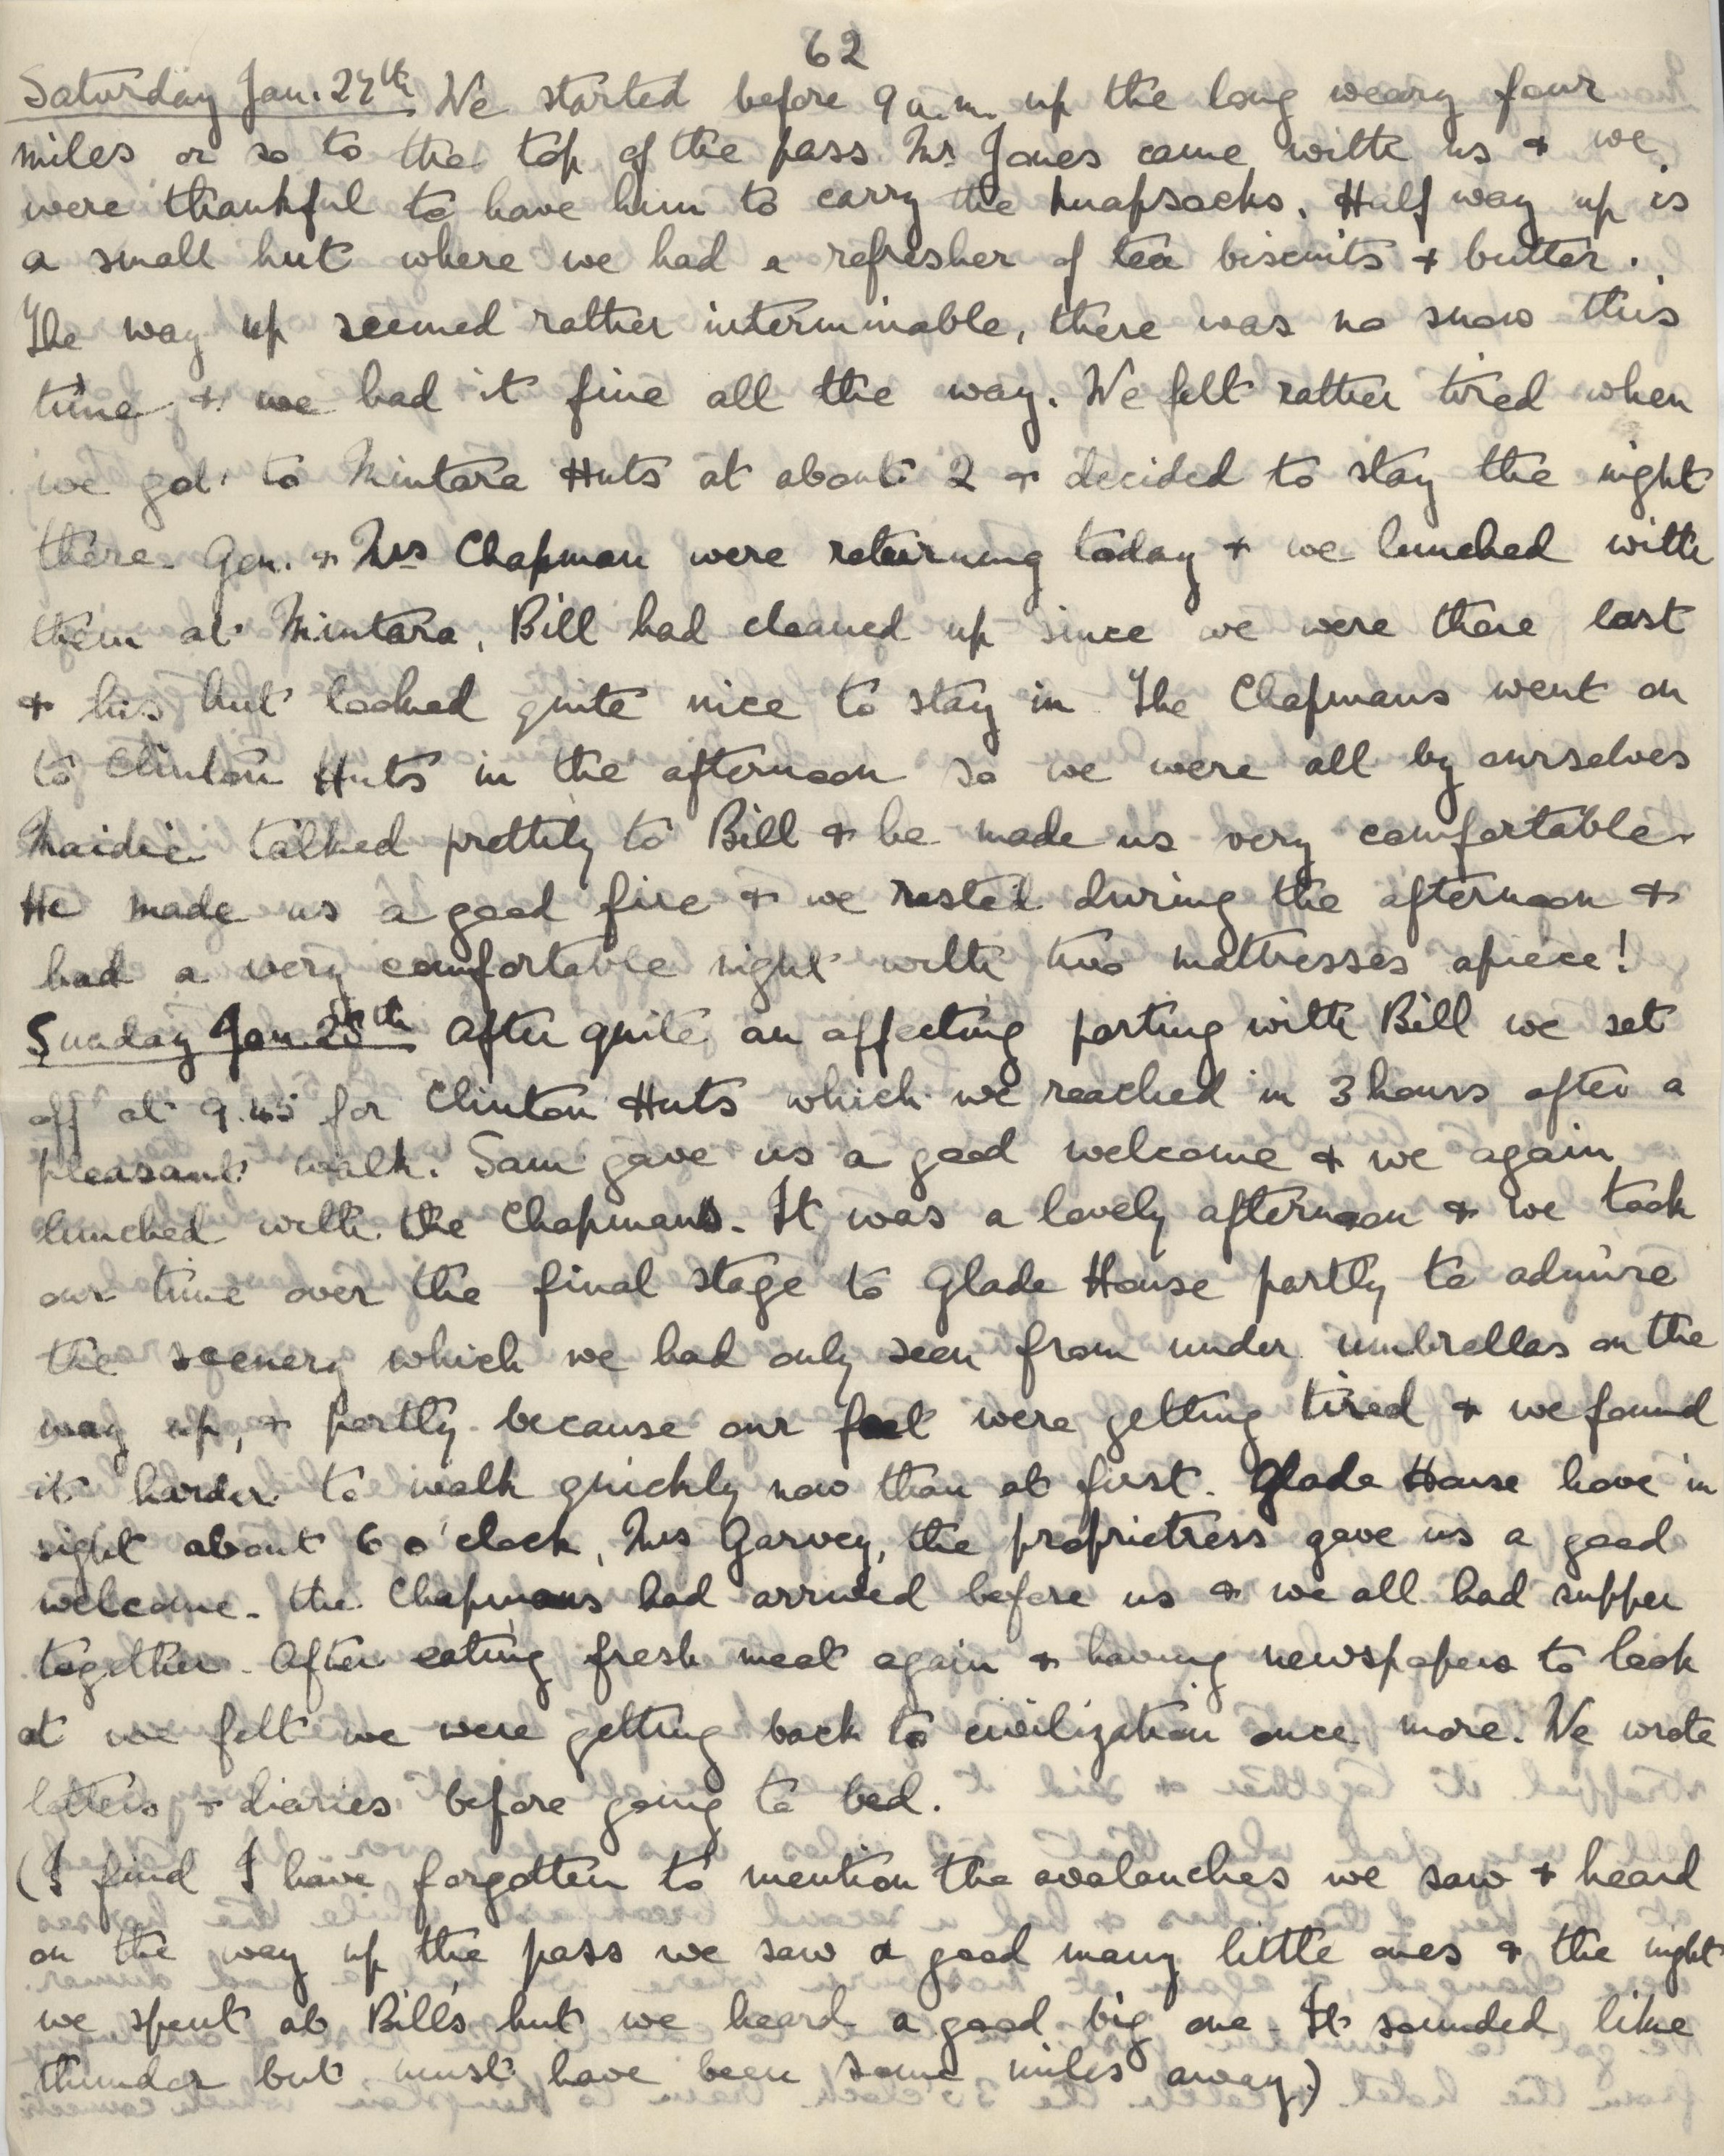 62
Saturday Jan. 27th We started before 9 a.m. up the long weary four
miles or so to the top of the pass. Mr Jones came with us + we
were thankful to have him to carry the knapsacks. Half way up is
a small hut where we had a refresher of tea biscuits + butter.
The way up seemed rather interminable, there was no snow this
time + we had it fine all the way. We felt rather tired when
we got to Mintara Huts at about 2 + decided to stay the night
there. Gen. + Mrs Chapman were returning today + we lunched with
them at Mintara. Bill had cleaned up since we were there last
+ his hut looked quite nice to stay in. The Chapmans went on
to Clinton Huts in the afternoon so we were all by ourselves
Maidie talked prettily to Bill + he made us very comfortable.
He made us a good fire + we rested during the afternoon +
had a very comfortable night with two mattresses apiece!
Sunday Jan. 28th After quite an affecting parting with Bill we set
off at 9.45 for Clinton Huts which we reached in 3 hours after a
pleasant walk. Sam gave us a good welcome + we again
lunched with the Chapmans. It was a lovely afternoon + we took
our time over the final stage to Glade House partly to admire
the scenery which we had only seen from under umbrellas on the
way up, + partly because our feet were getting tired + we found
it harder to walk quickly now than at first. Glade House hove in
sight about 6 o'clock, Mrs Garvey, the proprietress gave us a good
welcome. The Chapmans had arrived before us + we all had supper
together. After eating fresh meat again + having newspapers to look
at we felt we were getting back to civilization once more. We wrote
letters + diaries before going to bed.
(I find I have forgotten to mention the avalanches we saw + heard
on the way up the pass we saw a good many little ones + the night
we spent at Bill's hut we heard a good big one. It sounded like
thunder but must have been some miles away.)